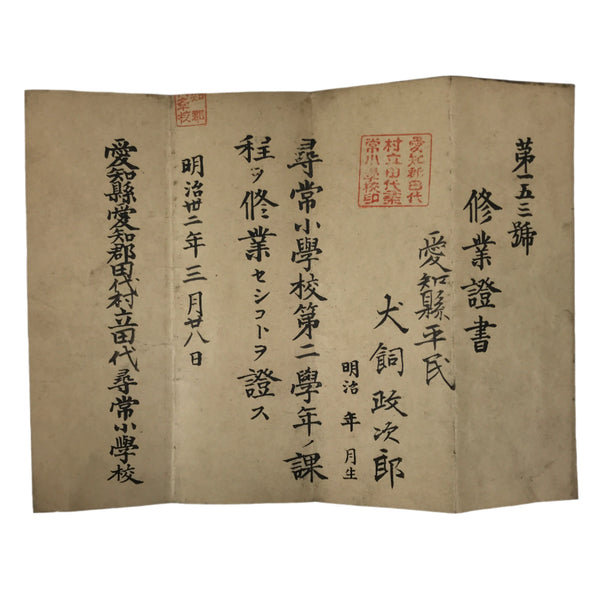 第一五三號
修業證書
愛知縣平民
犬飼政次郎
明治 年 月生
尋常小學校第二學年ノ課
程ヲ修業セシコトヲ證ス
明治廿二年三月廿八日
愛知縣愛知郡田代村立田代尋常小學校
愛知郡田代
村立田代尋
常小學校印